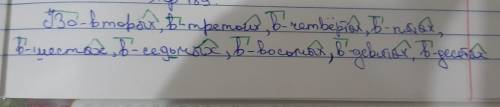 Во-вторых, в-третьих, в-четвёртых, в-пятых,
в-шестых, в-седьмых, в-восьмых, в-девятых, в-десятых